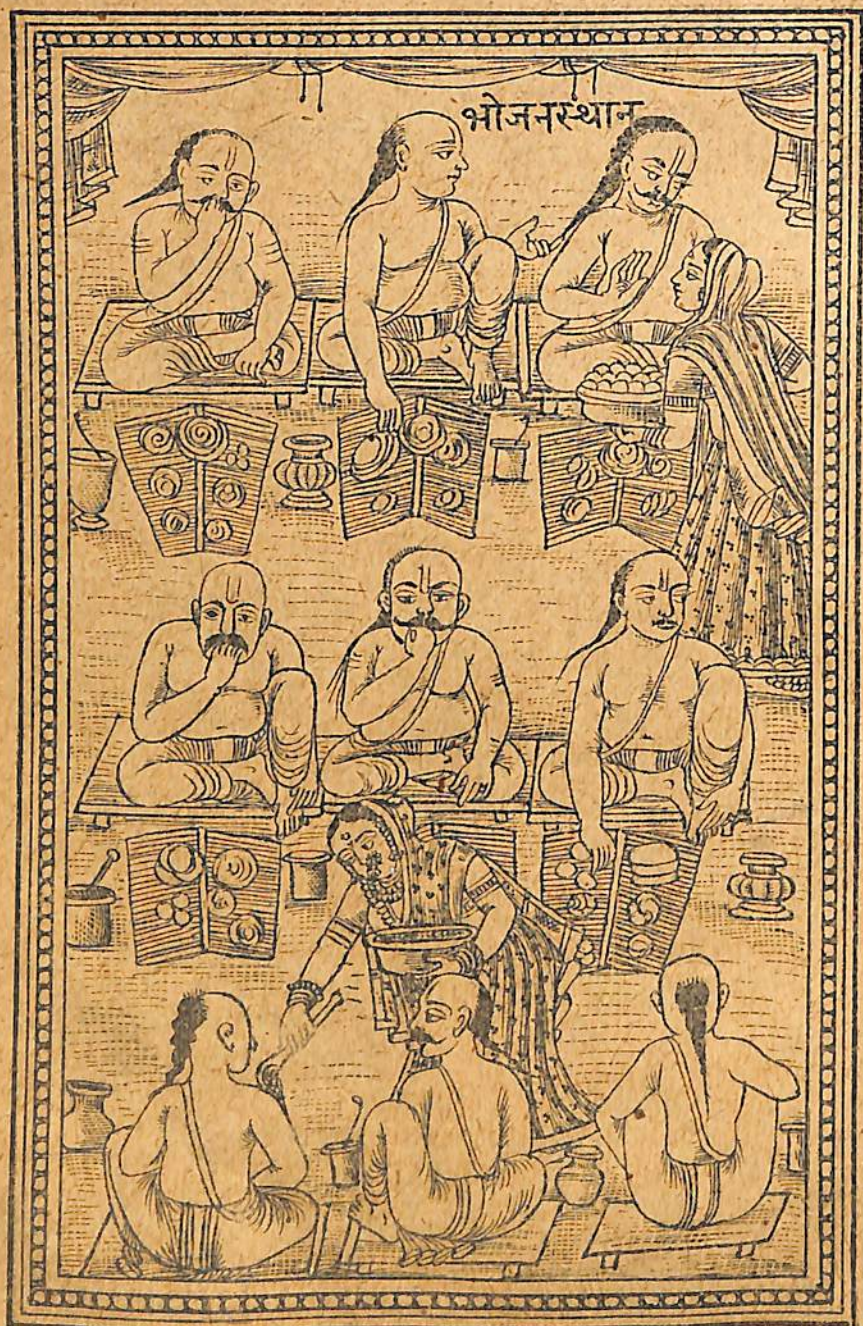 भोजनस्थान